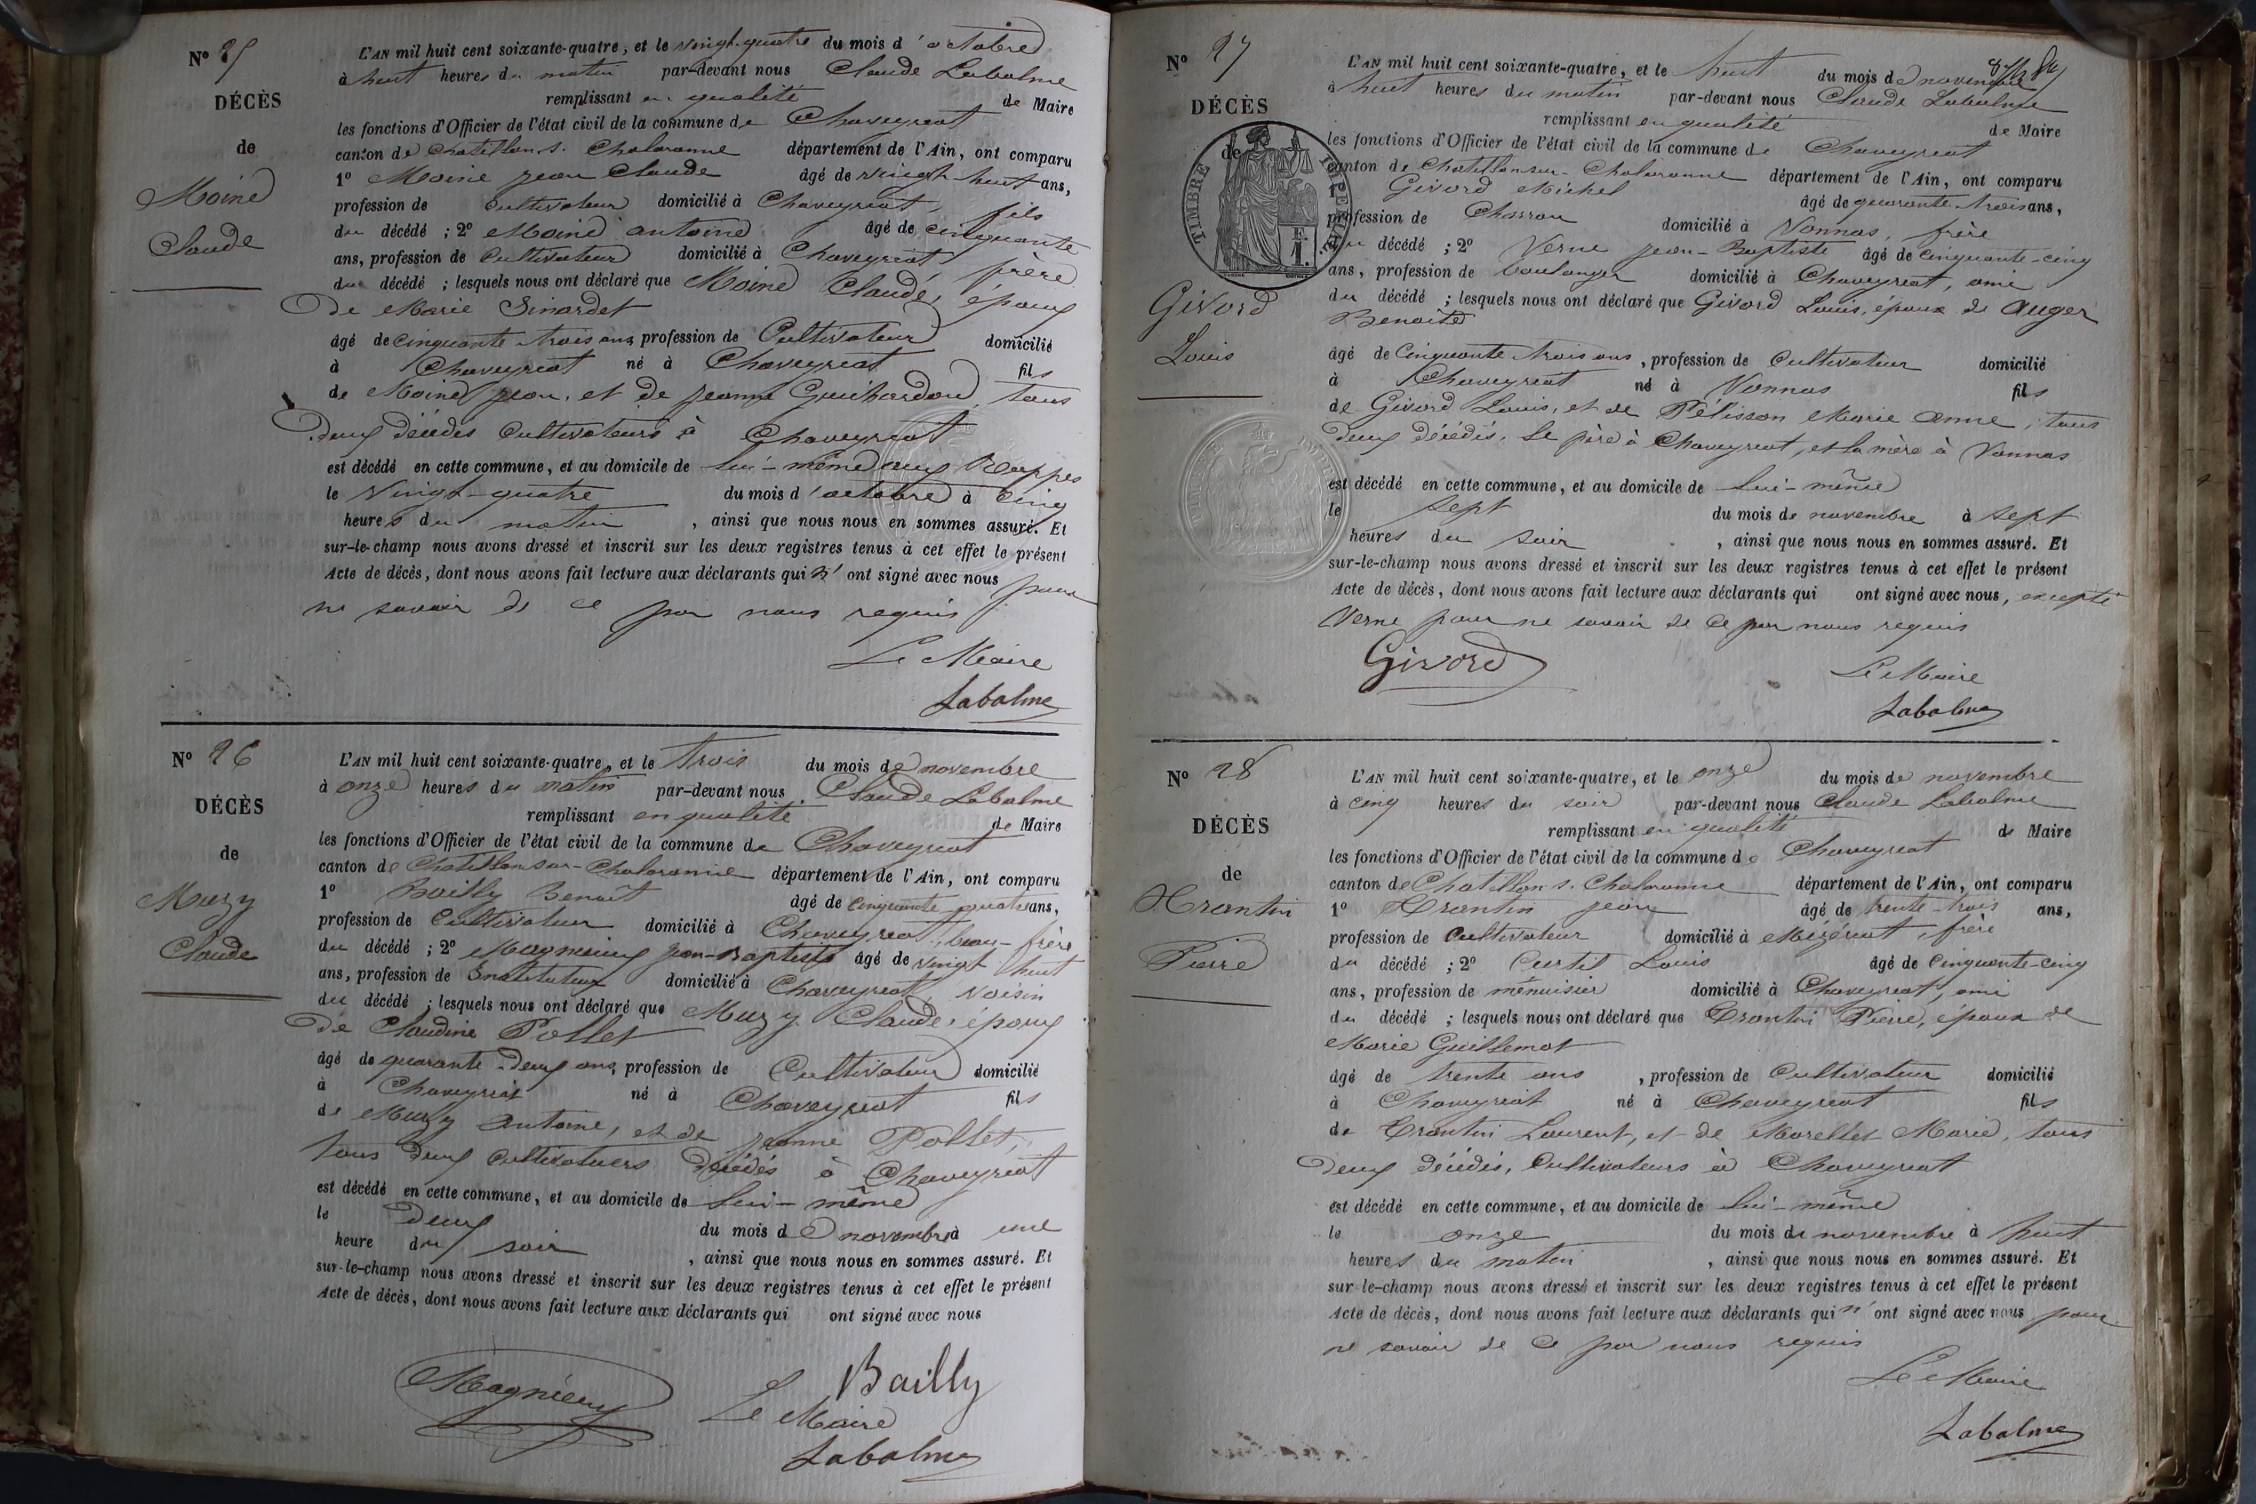 N° 25
DÉCÈS
de
Moine
Claude
L'AN mil huit cent soixante-quatre, et le vingt-quatre du mois d'octobre
à huit heures du matin par-devant nous Claude Labalme
remplissant en qualité de Maire
les fonctions d'Officier de l'état civil de la commune de Chaveyriat
canton de Chatillon s. Chalaronne département de l'Ain, ont comparu
1° Moine jean Claude âgé de vingt-huit ans,
profession de Cultivateur domicilié à Chaveyriat, fils
du décédé ; 2° Moine antoine âgé de cinquante
ans, profession de Cultivateur domicilié à Chaveyriat frère
du décédé ; lesquels nous ont déclaré que Moine Claude, époux
De Marie Sinardet
âgé de cinquante-trois ans profession de Cultivateur domicilié
à Chaveyriat né à Chaveyriat fils
de Moine jean, et de jeanne Guichardon, tous
Deux décédés Cultivateurs à Chaveyriat
est décédé en cette commune, et au domicile de lui-même aux Rappes
le vingt-quatre du mois d'octobre à cinq
heures du matin , ainsi que nous nous en sommes assuré. Et
sur-le-champ nous avons dressé et inscrit sur les deux registres tenus à cet effet le présent
Acte de décès, dont nous avons fait lecture aux déclarants qui n'ont signé avec nous pour
ne savoir de ce par nous requis
Le Maire
Labalme
N° 26
DÉCÈS
de
Muzy
Claude
L'AN mil huit cent soixante-quatre, et le trois du mois de novembre
à onze heures du matin par-devant nous Claude Labalme
remplissant en qualité de Maire
les fonctions d'Officier de l'état civil de la commune de Chaveyriat
canton de Chatillon sur-Chalaronne département de l'Ain, ont comparu
1° Bailly Benoit âgé de cinquante quatre ans,
profession de Cultivateur domicilié à Chaveyriat, beau-frère
du décédé ; 2° Magnieny jean-Baptiste âgé de vingt huit
ans, profession de Instituteur domicilié à Chaveyriat, voisin
du décédé ; lesquels nous ont déclaré que Muzy Claude, époux
De Claudine Pollet
âgé de quarante-deux ans, profession de Cultivateur domicilié
à Chaveyriat né à Chaveyriat fils
de Muzy Antoine, et de jeanne Pollet,
tous Deux Cultivateurs décédés à Chaveyriat
est décédé en cette commune, et au domicile de lui-même
le Deux du mois de novembre à une
heure du soir , ainsi que nous nous en sommes assuré. Et
sur-le-champ nous avons dressé et inscrit sur les deux registres tenus à cet effet le présent
Acte de décès, dont nous avons fait lecture aux déclarants qui ont signé avec nous
Magnieny
Bailly
Le Maire
Labalme
N° 27
DÉCÈS
de
TIMBRE IMPERIAL
Givord
Louis
L'AN mil huit cent soixante-quatre, et le huit du mois de novembre
à huit heures du matin par-devant nous Claude Labalme
remplissant en qualité de Maire
les fonctions d'Officier de l'état civil de la commune de Chaveyriat
canton de Chatillon sur-Chalaronne département de l'Ain, ont comparu
Givord Michel âgé de quarante-trois ans,
profession de Charron domicilié à Vonnas, frère
du décédé ; 2° Verne jean-Baptiste âgé de cinquante-cinq
ans, profession de boulanger domicilié à Chaveyriat, ami
du décédé ; lesquels nous ont déclaré que Givord Louis, époux de Auger
Benoite
âgé de cinquante-trois ans, profession de Cultivateur domicilié
à Chaveyriat né à Vonnas fils
de Givord Louis, et de Pélisson Marie Anne, tous
deux décédés, Le père à Chaveyriat, et la mère à Vonnas
est décédé en cette commune, et au domicile de lui-même
le sept du mois de novembre à sept
heures du soir , ainsi que nous nous en sommes assuré. Et
sur-le-champ nous avons dressé et inscrit sur les deux registres tenus à cet effet le présent
Acte de décès, dont nous avons fait lecture aux déclarants qui ont signé avec nous, excepté
Verne pour ne savoir de ce par nous requis
Givord
Le Maire
Labalme
N° 28
DÉCÈS
de
Trontin
Pierre
L'AN mil huit cent soixante-quatre, et le onze du mois de novembre
à cinq heures du soir par-devant nous Claude Labalme
remplissant en qualité de Maire
les fonctions d'Officier de l'état civil de la commune de Chaveyriat
canton de Chatillon s. Chalaronne département de l'Ain, ont comparu
1° Trontin jean âgé de trente-trois ans,
profession de Cultivateur domicilié à Mézériat, frère
du décédé ; 2° Curtil Louis âgé de cinquante-cinq
ans, profession de menuisier domicilié à Chaveyriat, ami
du décédé ; lesquels nous ont déclaré que Trontin Pierre, époux de
Marie Guillemot
âgé de trente ans , profession de Cultivateur domicilié
à Chaveyriat né à Chaveyriat fils
de Trontin Laurent, et de Morellet Marie, tous
deux décédés, Cultivateurs à Chaveyriat
est décédé en cette commune, et au domicile de lui-même
le onze du mois de novembre à huit
heures du matin , ainsi que nous nous en sommes assuré. Et
sur-le-champ nous avons dressé et inscrit sur les deux registres tenus à cet effet le présent
Acte de décès, dont nous avons fait lecture aux déclarants qui n'ont signé avec nous pour
ne savoir de ce par nous requis
Le Maire
Labalme